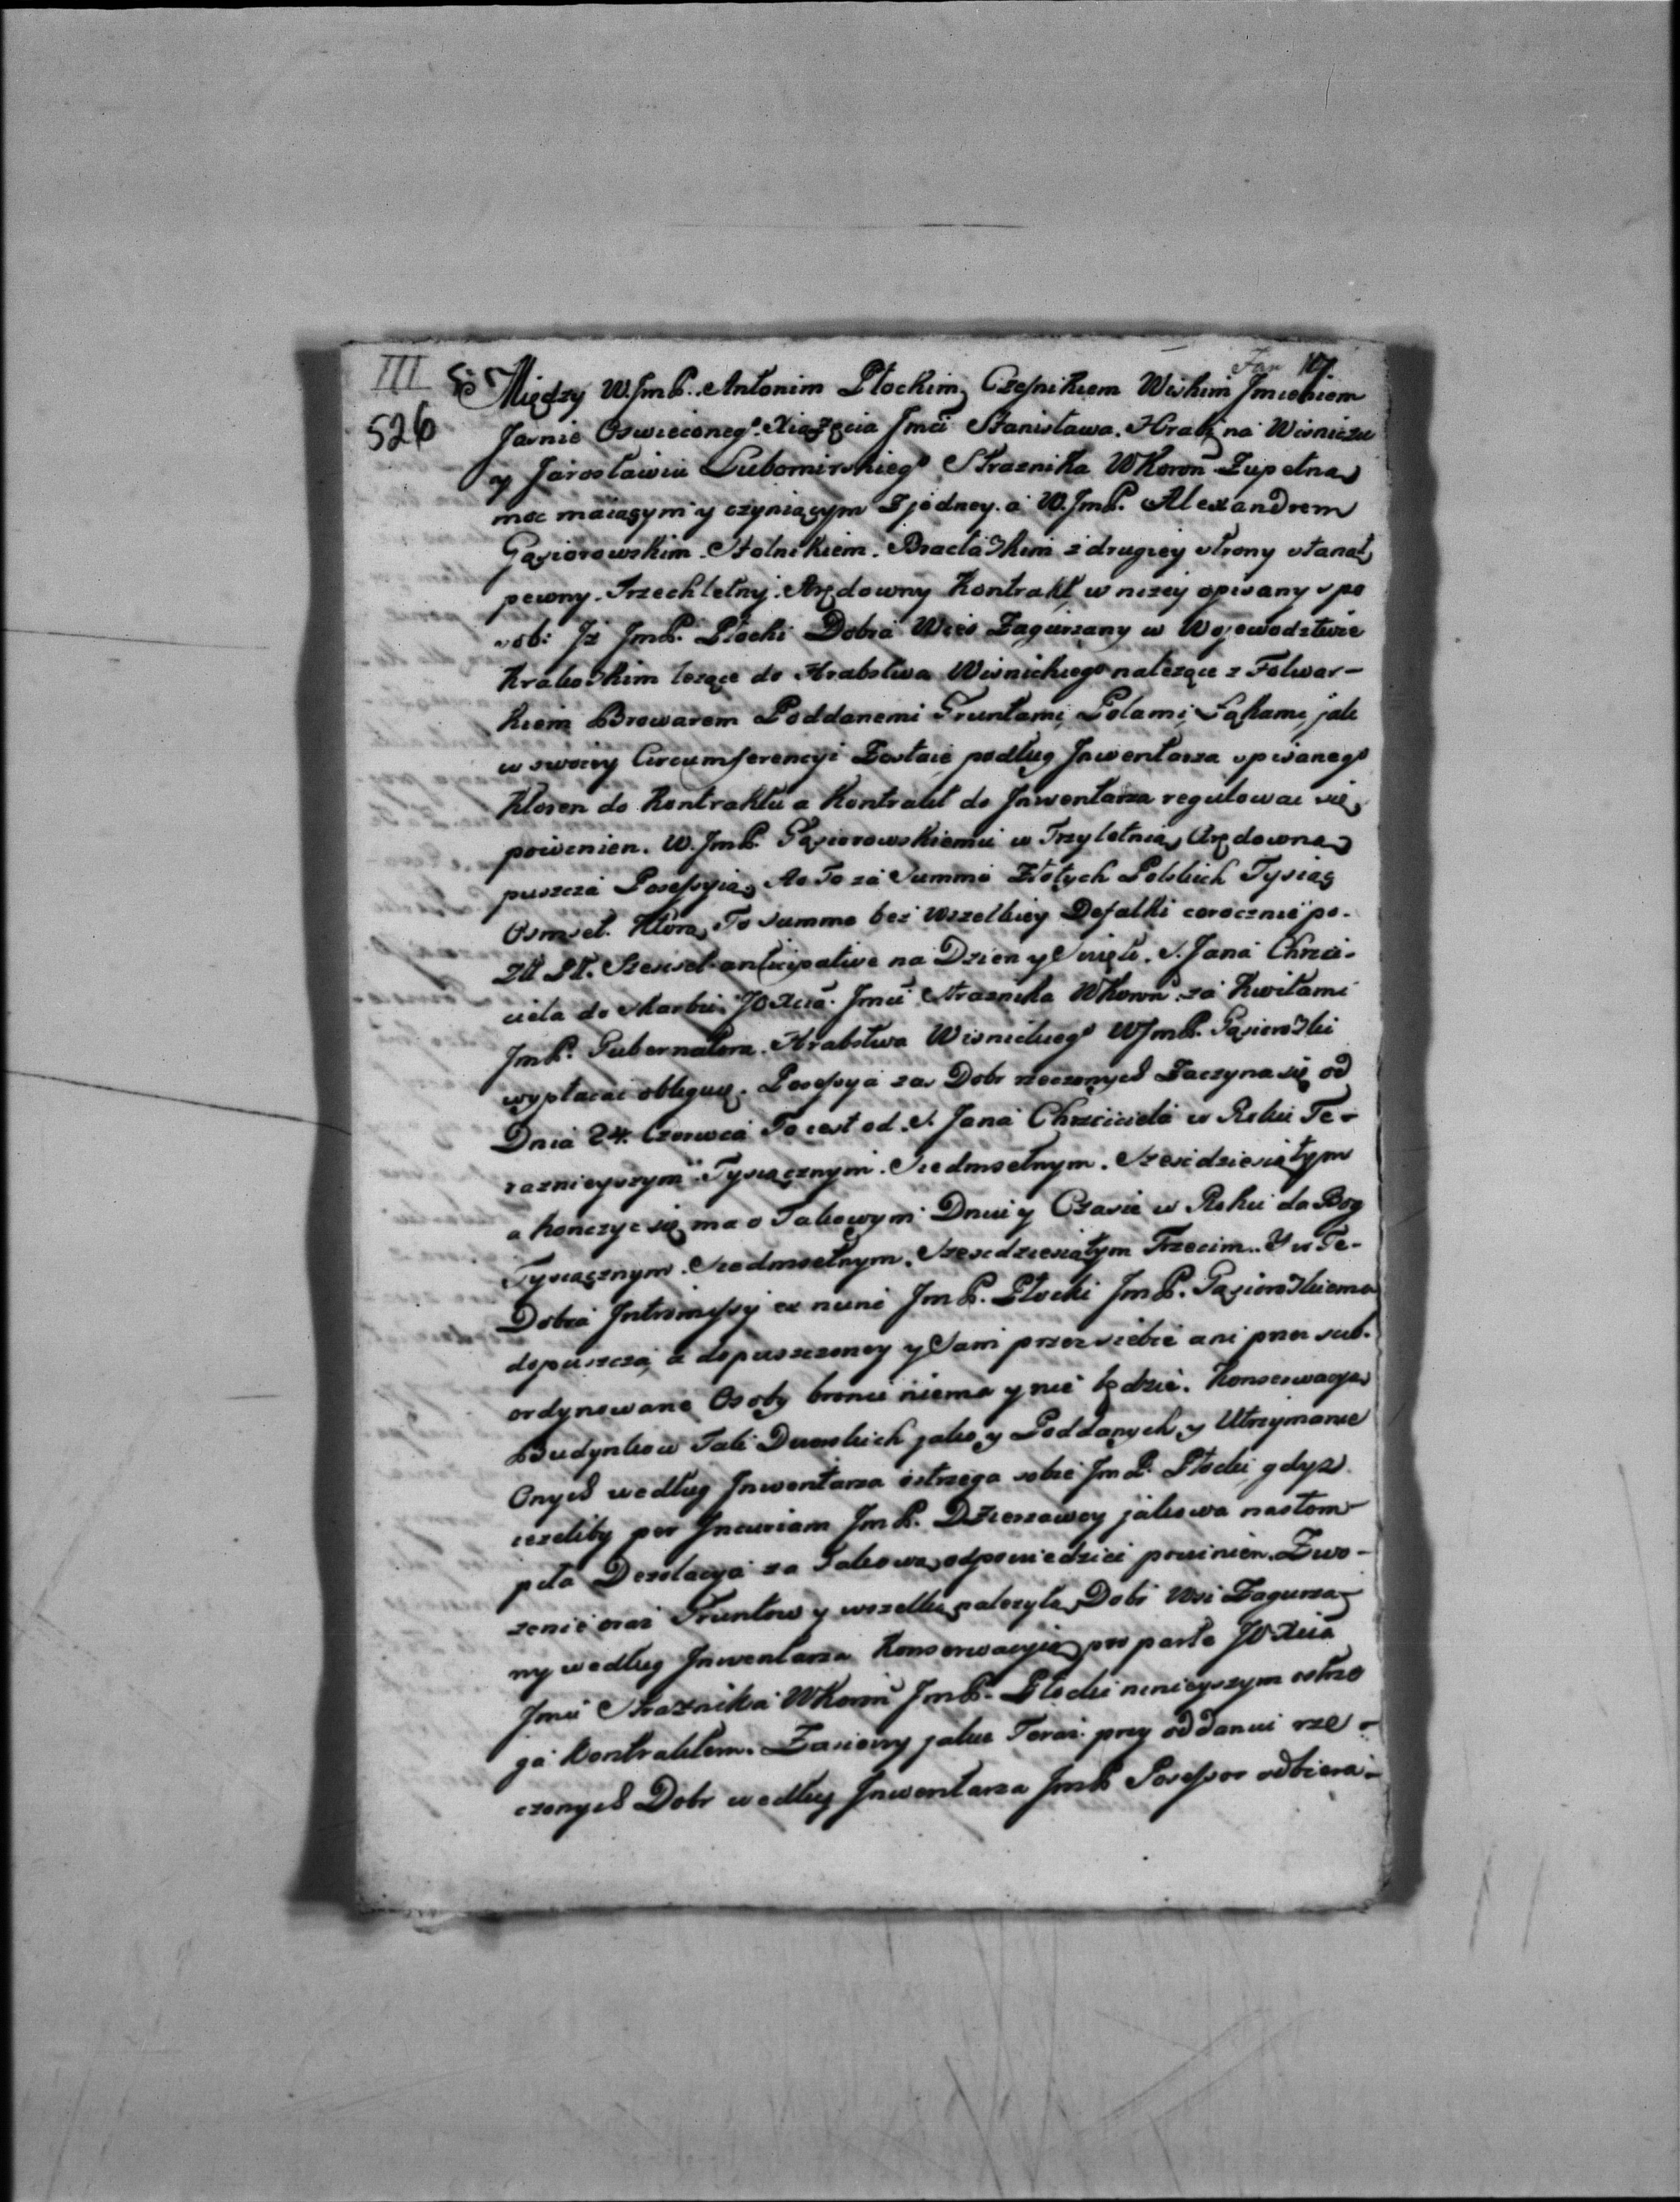 III
526
Między W. JmP. Antonim Płockim Czesnikiem Wiskim Jmieniem
Jasnie Oswieconego Xiążęcia Jmci Stanisława Hrabi na Wisniczu
y Jarosławiu Lubomirskiego Straznika WKoron Zupełną
moc maiącym y czyniącym z jedney. a W. JmP. Alexandrem
Gąsiorowskim Stolnikiem Bracłaskim z drugiey strony stanął
pewny Trzechletny Arędowny Kontrakt w nizey opisany spo
sob: Jż JmP. Płocki Dobra Wies Zagurzany w Wojewodztwie
Krakoskim lezące do Hrabstwa Wisnickiego nalezące z Folwar-
kiem Browarem Poddanemi Gruntami, Polami, Łąkami, jak
w swoiey Circumferencyi Zostaie podług Jnwentarza spisanego
Ktoren do Kontraktu a Kontrakt do Jnwentarza regulowac się
powinien. W. JmP. Gąsiorowskiemu w Trzyletnią Arędowną
puszcza Possessyią. A to za Summę Złotych Polskich Tysiąc
Osmset. Ktorą To summe bez wszelkiey Defalki corocznie po
Zł Pl. Szescset anticipative na Dzien y Swięto S. Jana Chrzci-
ciela do Skarbu JO Xcia Jmci Straznika WKoron. za Kwitami
JmP. Gubernatora Hrabstwa Wisnickiego WJmP. Gąsioroski
wypłacac obliguie. Possessya zas Dobr rzeczonych Zaczyna się od
Dnia 24. Czerwca To iest od S. Jana Chrzciciela w Roku Te-
raznieyszym Tysiącznym Siedmsetnym Szescdziesiątym
a konczyc się ma o Takowym Dniu y Czasie w Roku da Bog
Tysiącznym Siedmsetnym Szescdziesiątym Trzecim. Y w Te-
Dobra Jntromissyi ex nunc JmP. Płocki JmP. Gąsioroskiemu
dopuszcza, a dopuszczoney y Sam przez siebie ani przez sub-
ordynowane Osoby bronic niema y nie będzie. Konserwacyą
Budynkow Tak Dworskich jako y Poddanych y Utrzymanie
Onych według Jnwentarza ostrzega sobie JmP. Płocki gdysz
iezeliby per Jncuriam JmP. Dzierzawcy jakowa nastom-
piła Desolacya za Takową odpowiedziec powinien. Zwo-
zenie oraz Gruntow y wszelką nalezytą Dobr Wsi Zagurza-
ny według Jnwentarza Konserwacyią pro parte JO Xcia
Jmci Straznika WKoron JmP. Płocki ninieyszym ostrze
ga Kontraktem. Zasiewy jakie Teraz przy oddaniu rze-
czonych Dobr według Jnwentarza JmP. Possessor odbiera-